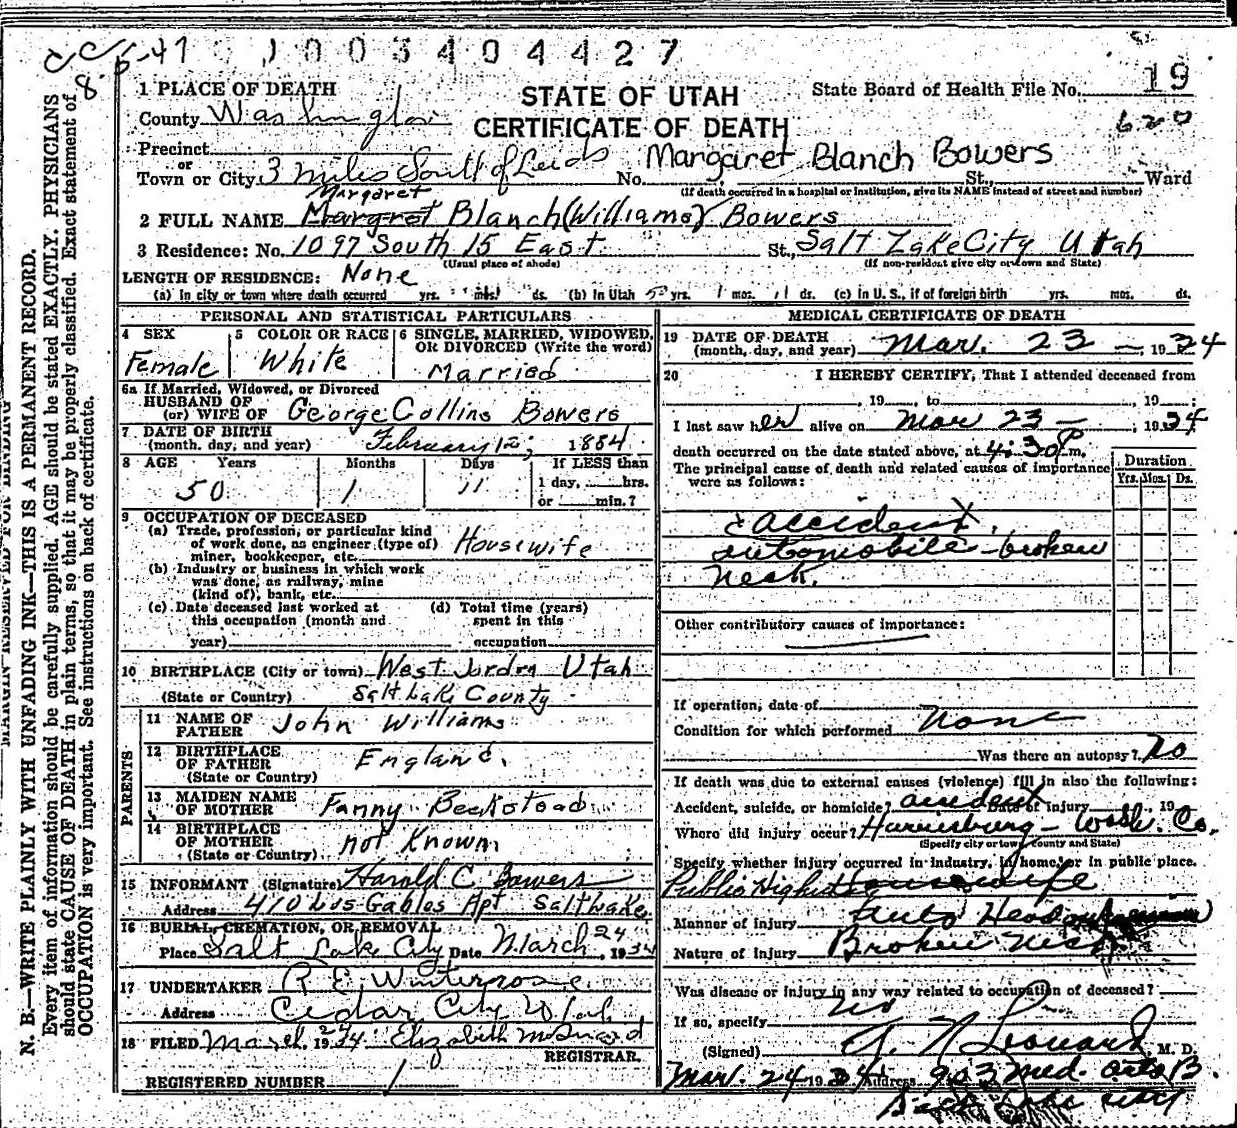 CC 5-47 1003404427
8
1 PLACE OF DEATH
STATE OF UTAH
State Board of Health File No. 19
County Washington
CERTIFICATE OF DEATH
620
Precinct
or
Town or City 3 miles South of Leeds Margaret Blanch Bowers No. St., Ward
(If death occurred in a hospital or institution, give its NAME instead of street and number)
Margaret
2 FULL NAME Margret Blanch (Williams) Bowers
3 Residence: No. 1097 South 15 East St., Salt Lake City Utah
(Usual place of abode) (If non-resident give city or town and State)
LENGTH OF RESIDENCE: None
(a) In city or town where death occurred yrs. mos. ds. (b) In Utah 50 yrs. 1 mos. 11 ds. (c) in U. S., if of foreign birth yrs. mos. ds.
PERSONAL AND STATISTICAL PARTICULARS
4 SEX Female
5 COLOR OR RACE White
6 SINGLE, MARRIED, WIDOWED, OR DIVORCED (Write the word)
Married
6a If Married, Widowed, or Divorced
HUSBAND OF
(or) WIFE OF George Collins Bowers
7 DATE OF BIRTH
(month, day, and year) February 12, 1884
8 AGE Years Months Days If LESS than
50 1 11 1 day, hrs.
or min.?
9 OCCUPATION OF DECEASED
(a) Trade, profession, or particular kind
of work done, as engineer (type of)
miner, bookkeeper, etc. Housewife
(b) Industry or business in which work
was done, as railway, mine
(kind of), bank, etc.
(c) Date deceased last worked at (d) Total time (years)
this occupation (month and spent in this
year) occupation
10 BIRTHPLACE (City or town) West Jordan Utah
(State or Country) Salt Lake County
PARENTS
11 NAME OF
FATHER John Williams
12 BIRTHPLACE
OF FATHER England
(State or Country)
13 MAIDEN NAME
OF MOTHER Fanny Beckstead
14 BIRTHPLACE
OF MOTHER not Known
(State or Country)
15 INFORMANT (Signature) Harold C. Bowers
Address 410 Los Gables Apt Salt Lake
16 BURIAL, CREMATION, OR REMOVAL
Place Salt Lake City Date March 24, 1934
17 UNDERTAKER R E Winterrose
Address Cedar City Utah
18 FILED March 24 1934 Elizabeth
REGISTRAR.
REGISTERED NUMBER 1
MEDICAL CERTIFICATE OF DEATH
19 DATE OF DEATH
(month, day, and year) Mar. 23 - , 1934
20 I HEREBY CERTIFY, That I attended deceased from
, 19 , to , 19 ;
I last saw her alive on Mar 23 - , 1934
death occurred on the date stated above, at 4:30 P m.
The principal cause of death and related causes of importance
were as follows:
Duration
Yrs. Mos. Ds.
accident.
automobile - broken
neck.
Other contributory causes of importance:
If operation, date of
Condition for which performed None
Was there an autopsy? No
If death was due to external causes (violence) fill in also the following:
Accident, suicide, or homicide? accident Date of injury , 19
Where did injury occur? Harrisburg - Wash. Co.
(Specify city or town, county and State)
Specify whether injury occurred in industry, in home, or in public place.
Public Highway housewife
Manner of injury Auto Head on
Nature of injury Broken Neck
Was disease or injury in any way related to occupation of deceased?
If so, specify No
(Signed) A. N. Leonard M. D.
Mar. 24 1934 Address 903 Med. Arts B.
Salt Lake City
MARGIN RESERVED FOR BINDING
N. B.—WRITE PLAINLY WITH UNFADING INK—THIS IS A PERMANENT RECORD.
Every item of information should be carefully supplied. AGE should be stated EXACTLY. PHYSICIANS
should state CAUSE OF DEATH in plain terms, so that it may be properly classified. Exact statement of
OCCUPATION is very important. See instructions on back of certificate.